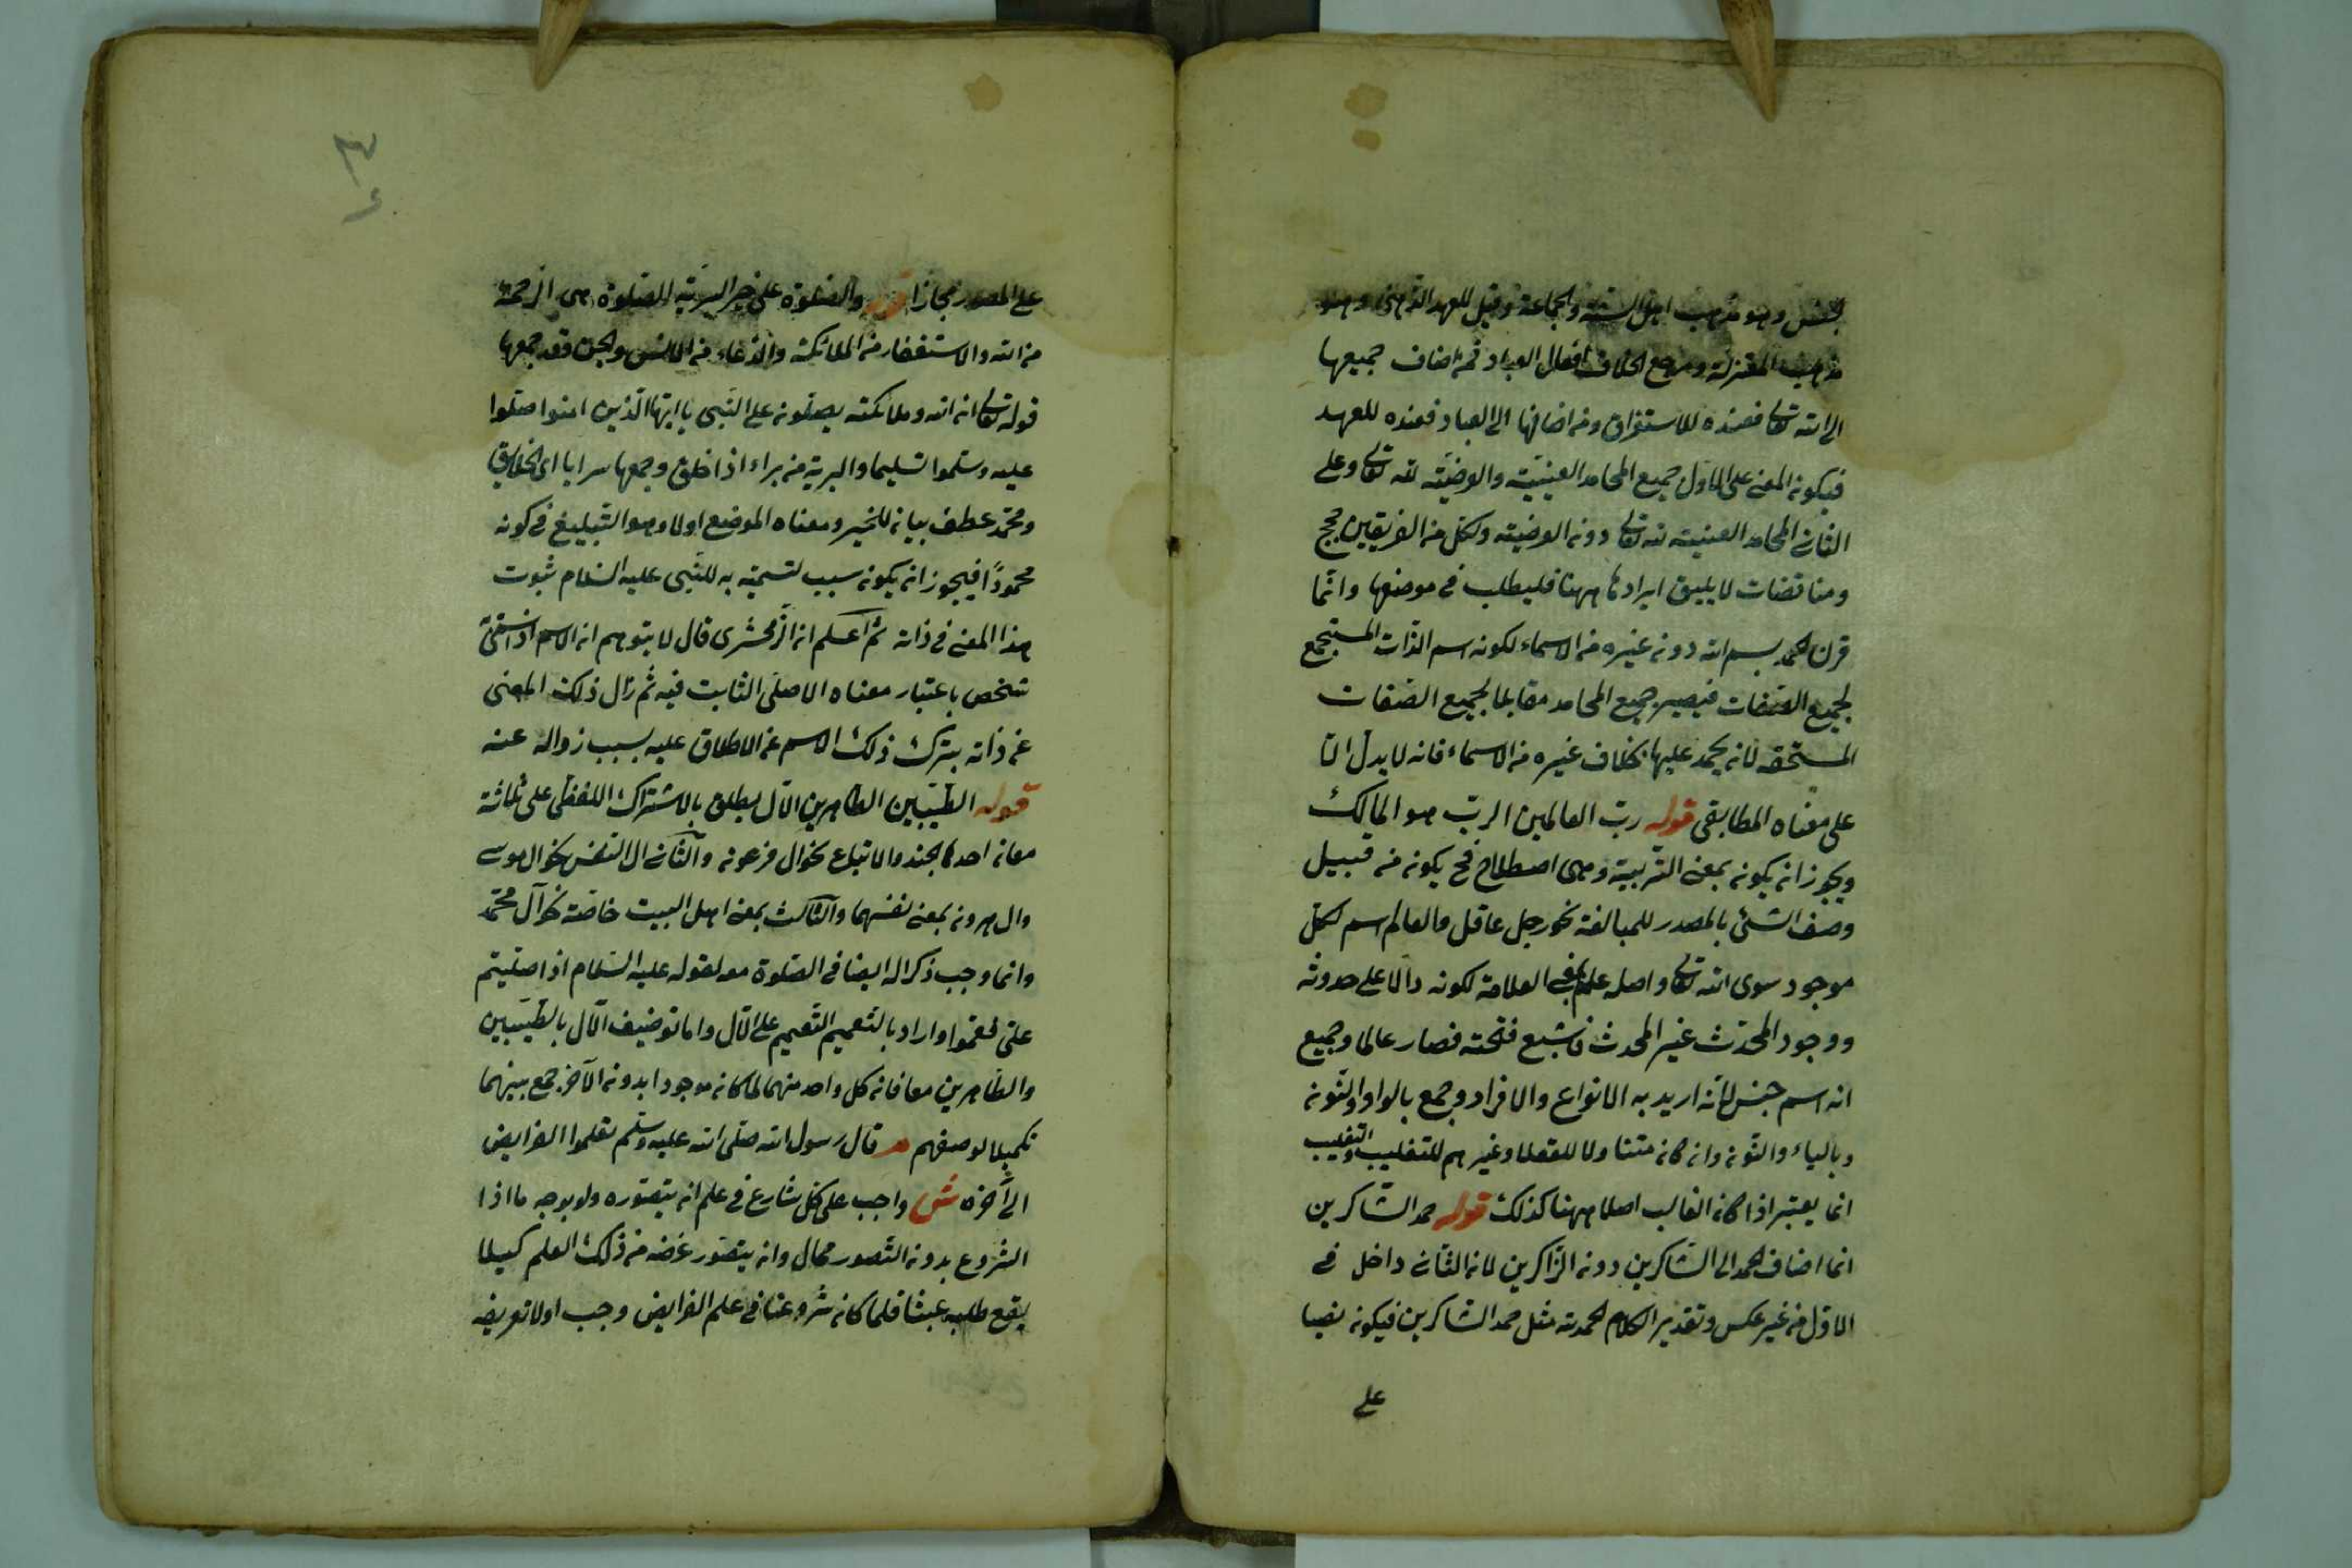 للجنس وهو مذهب اهل السنة والجماعة وقيل للعهد الذهنى وهو
مذهب المعتزلة ومرجع الخلاف افعال العباد فمن اضاف جميعها
الى الله تعالى فعنده للاستغراق ومن اضافها الى العباد فعنده للعهد
فيكون المعنى على الاول جميع المحامد العينيّة والعرضيّة لله تعالى وعلى
الثانى المحامد العينية لله تعالى دون العرضية ولكل من الفريقين حجج
ومناقضات لا يليق ايرادها ههنا فليطلب فى موضعها وانّما
قرن الحمد بسم الله دون غيره من الاسماء لكونه اسم الذّات المستجمع
لجميع الصّفات فيصير جميع المحامد مقابلا لجميع الصّفات
المستحقه لان يحمد عليها بخلاف غيره من الاسماء فانه لا يدل الّا
على معناه المطابقى قوله ربّ العالمين الربّ هو المالك
ويجوز ان يكون بمعنى التّربية وهى اصطلاح فح يكون من قبيل
وصف الشئ بالمصدر للمبالغة نحو رجل عاقل والعالم اسم لكلّ
موجود سوى الله تعالى واصله علم بمعنى العلامة لكونه دالّا على حدوثه
ووجود المحدَث غير المحدث فاشبع فتحته فصار عالما وجميع
انه اسم جنس لانّه اريد به الانواع والافراد وجمع بالواو والنّون
وبالياء والنّون وان كان متناولا للعقلاء وغيرهم للتغليب والتغليب
انما يعتبر اذا كان الغالب اصلا ههنا كذلك قوله حمد الشّاكرين
انما اضاف الحمد الى الشّاكرين دون الذّاكرين لان الثّانى داخل فى
الاوّل من غير عكس وتقدير الكلام الحمد لله مثل حمد الشاكرين فيكون نصبا
على
على المصدر مجازا والصّلوة على خير البريّه الصّلوة هى الرّحمة
من الله والاستغفار من الملائكة والدّعاء من الانس والجن وقد جمعها
قوله تعالى ان الله وملائكته يصلّون على النّبى يا ايّها الّذين امنوا صلّوا
عليه وسلّموا تسليما والبرية من براء اذا خلق وجمعها برايا اى الخلايق
ومحمّد عطف بيان للخير ومعناه الموضع اولا وهو التّبليغ فى كونه
محمودًا فيجوز ان يكون سبب لتسميته به للنّبى عليه السّلام ثبوت
هذا المعنى فى ذاته ثم اعلم ان الزّمخشرى قال لا يتوهم ان الاسم اذا استحق
شخص باعتبار معناه الاصلى الثابت فيه ثم زال ذلك المعنى
عن ذاته بترك ذلك الاسم عن الاطلاق عليه بسبب زواله عنه
قوله الطّيّبين الطاهرين الآل يطلق بالاشتراك اللفظى على ثلاثة
معان احدها الجند والاتباع نحو آل فرعون والثّانى ال النّفس نحو ال موسى
وال هرون بمعنى نفسهما والثّالث بمعنى اهل البيت خاصّة نحو آل محمّد
وانما وجب ذكر اله ايضا فى الصّلوة معه لقوله عليه السّلام اذا صلّيتم
علىّ فعمّموا واراد بالتّعميم التّعميم على الآل واما توصيف الآل بالطّيّبين
والطّاهرين معا فان كل واحد منهما لما كان موجودا بدون الآخر جمع بينهما
تكميلا لوصفهم م قال رسول الله صلّى الله عليه وسلّم تعلموا الفرايض
الى آخره ش واجب على كل شارع فى علم ان يتصّوره ولو بوجه ما اذا
الشّروع بدون التّصور محال وان يتصّور غرضه من ذلك العلم كيلا
يقع طلبه عبثا فلما كان شروعنا فى علم الفرايض وجب اولا تعريفه